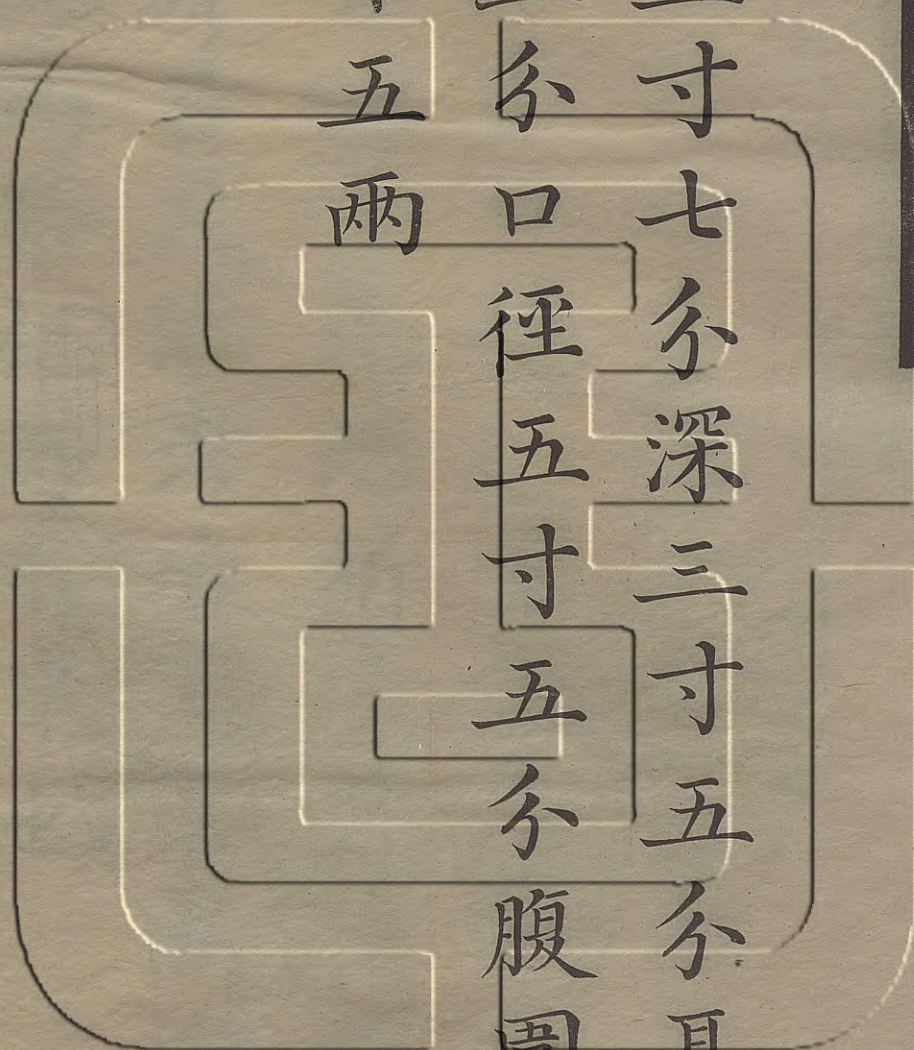 寸七分深三寸五分耳
分口徑五寸五分腹圍
五兩